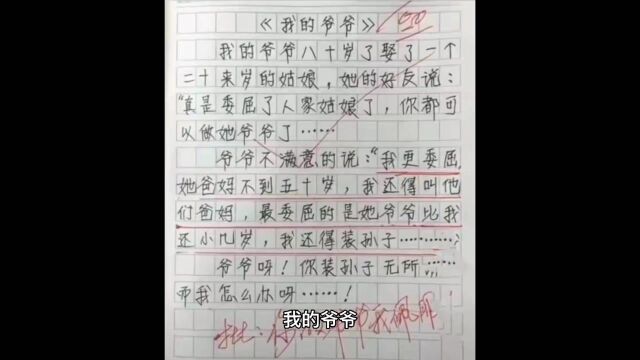 《我的爷爷》
我的爷爷八十岁了娶了一个
二十来岁的姑娘，她的好友说：
"真是委屈了人家姑娘了，你都可
以做她爷爷了……
爷爷不满意的说："我更委屈，
她爸妈不到五十岁，我还得叫他
们爸妈，最委屈的是她爷爷比我
还小几岁，我还得装孙子…………
爷爷呀！你装孙子无所……
而我怎么办呀……！
我的爷爷
批：你
爷爷我佩服